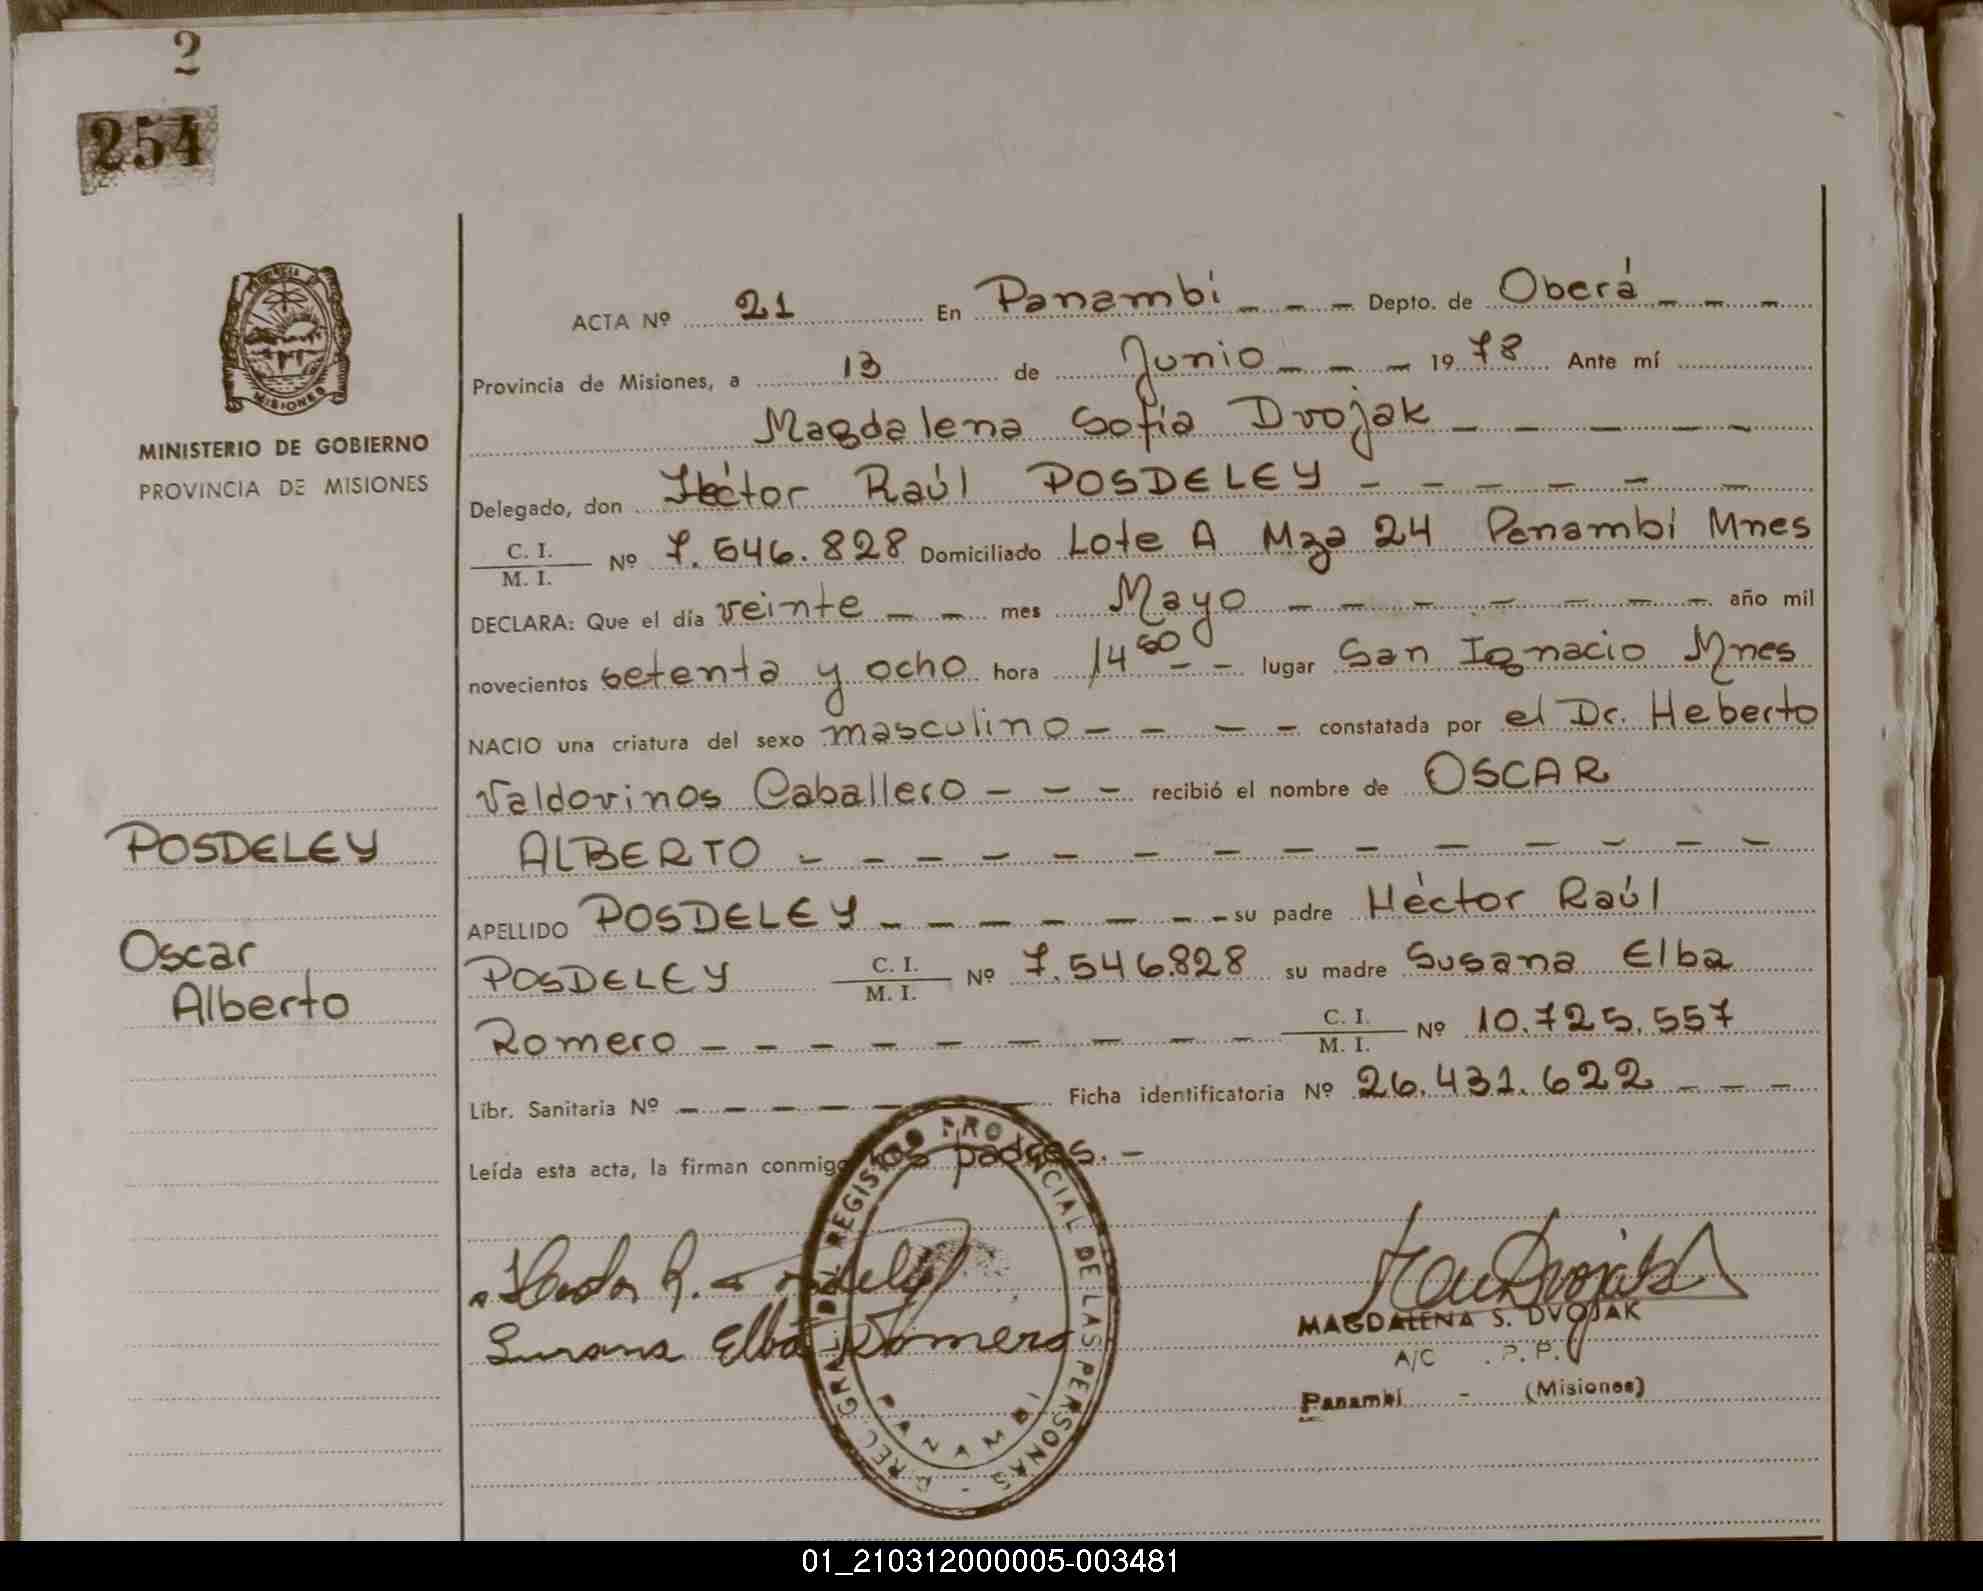 2
254
MINISTERIO DE GOBIERNO
PROVINCIA DE MISIONES
MISIONES
POSDELEY
Oscar
Alberto
ACTA Nº 21 En Panambí - - - Depto. de Oberá - - -
Provincia de Misiones, a 13 de Junio - - - 1978 Ante mí
Magdalena Sofía Dvojak - - - - -
Delegado, don Héctor Raúl POSDELEY - - - - - -
C. I.
M. I. Nº 7.546.828 Domiciliado Lote A Mza 24 Panambí Mnes
DECLARA: Que el día veinte - - mes Mayo - - - - - - - año mil
novecientos setenta y ocho hora 14 50 - - lugar San Ignacio Mnes
NACIO una criatura del sexo masculino - - - - constatada por el Dr. Heberto
Valdovinos Caballero - - - recibió el nombre de OSCAR
ALBERTO - - - - - - - - - - - - - -
APELLIDO POSDELEY - - - - - - - su padre Héctor Raúl
POSDELEY C. I.
M. I. Nº 7.546.828 su madre Susana Elba
Romero - - - - - - - - - - C. I.
M. I. Nº 10.725.557
Libr. Sanitaria Nº - - - - - - Ficha identificatoria Nº 26.431.622 - - -
Leída esta acta, la firman conmigo los padres. -
Susana Elba Romero
DIREC. GRAL. DEL REGISTRO PROVINCIAL DE LAS PERSONAS -
PANAMBI
MAGDALENA S. DVOJAK
A/C . P. P.
Panambí - (Misiones)
01_210312000005-003481